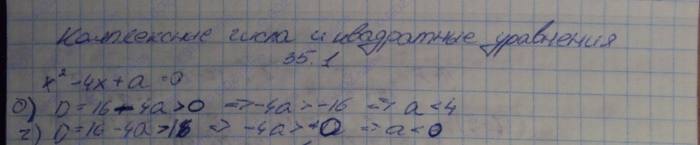 Комплексные числа и квадратные уравнения
35.1
x² -4x+a =0
б) D=16-4a>0 => -4a>-16 => a<4
г) D=16-4a>16 => -4a>0 => a<0